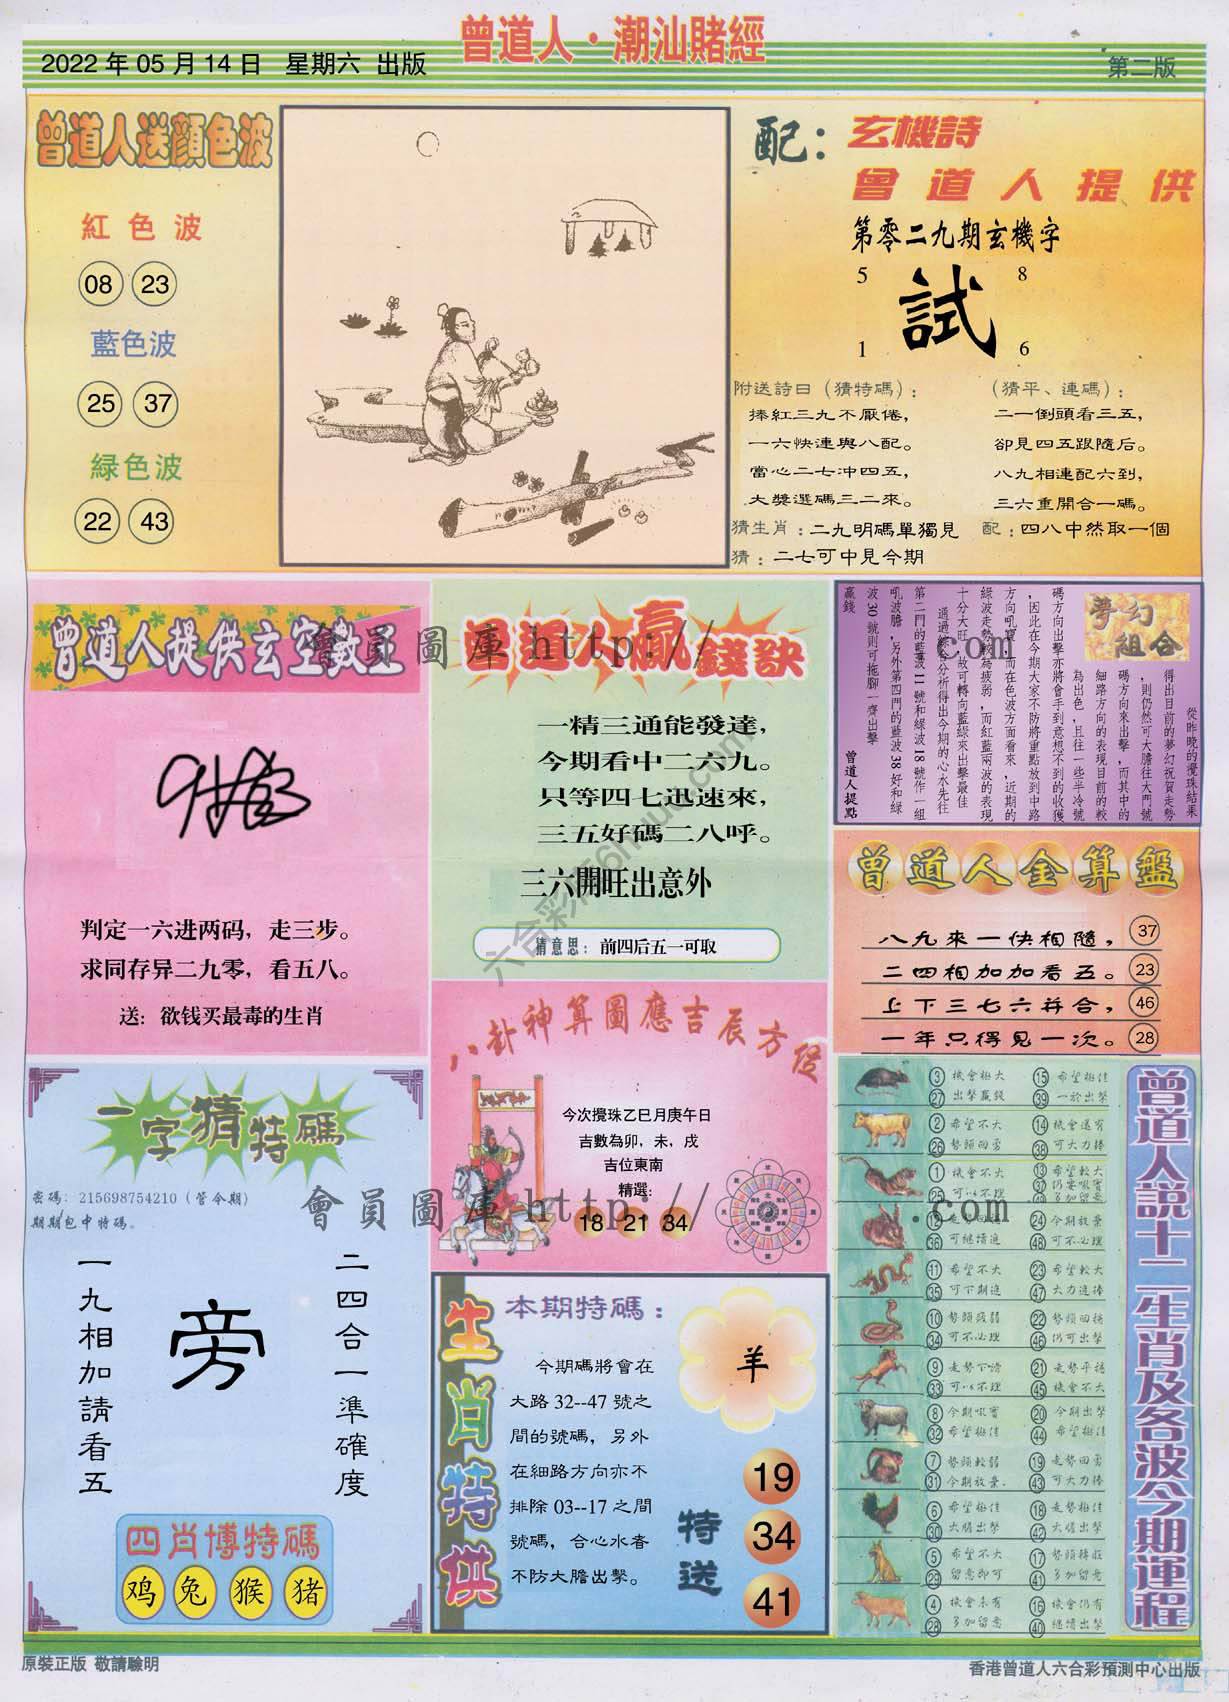 曾道人·潮汕賭經
2022 年 05 月 14 日 星期六 出版
第二版
曾道人送顏色波
紅色波
08 23
藍色波
25 37
緑色波
22 43
配：玄機詩
曾道人提供
第零二九期玄機字
5 8
試
1 6
附送詩曰（猜特碼）：
捧紅三九不厭倦，
一六快連與八配。
當心二七沖四五，
大獎選碼三二來。
（猜平、連碼）：
二一倒頭看三五，
卻見四五跟隨后。
八九相連配六到，
三六重開合一碼。
猜生肖：二九明碼單獨見 配：四八中然取一個
猜：二七可中見今期
曾道人提供玄空數王
判定一六进两码，走三步。
求同存异二九零，看五八。
送：欲钱买最毒的生肖
曾道人贏錢訣
一精三通能發達，
今期看中二六九。
只等四七迅速來，
三五好碼二八呼。
三六開旺出意外
猜意思：前四后五一可取
夢幻組合
從昨晚的攪珠結果
得出目前的夢幻祝賀走勢
，則仍然可大膽往大門號
碼方向來出擊，而其中的
細路方向的表現目前的較
為出色，且往一些半冷號
碼方向出擊亦將會手到意想不到的收獲
，因此在今期大家不防將重點放到中路
方向吼寶，而在色波方面看來，近期的
綠波走勢較為疲弱，而紅藍兩波的表現
十分大旺，故可轉向藍綠來出擊最佳
通過綜合分析得出今期的心水先往
第二門的藍波 11 號和綠波 18 號作一組
吼波膽，另外第四門的藍波 38 好和綠
波 30 號則可拖腳一齊出擊
贏錢
曾道人提點
曾道人金算盤
八九來一快相隨， 37
二四相加加看五。 23
上下三七六并合， 46
一年只得見一次。 28
八卦神算圖應吉辰方位
今次攪珠乙巳月庚午日
吉數為卯，未，戌
吉位東南
精選：
18 21 34
一字猜特碼
密碼：215698754210（管今期）
期期包中特碼。
二四合一準確度
旁
一九相加請看五
四肖博特碼
鸡 兔 猴 猪
生肖特供
本期特碼：
今期碼將會在
大路 32--47 號之
間的號碼，另外
在細路方向亦不
排除 03--17 之間
號碼，合心水者
不防大膽出擊。
羊
特送
19
34
41
曾道人説十二生肖及各波今期運程
3 機會極大 15 希望極佳
27 出擊贏錢 39 一於出擊
2 希望不大 14 機會還有
26 勢頭回勇 38 可大力捧
1 機會不大 13 希望較大
25 可以不理 37 仍要吼寶
49 多加留意
12 走勢回穩 24 今期放棄
36 可繼續追 48 可不必理
11 希望不大 23 希望較大
35 可下期追 47 大力追捧
10 勢頭疲弱 22 勢頭回穩
34 可不必理 46 仍可出擊
9 走勢下滑 21 走勢平穩
33 可以不理 45 機會不大
8 今期吼寶 20 今期出擊
32 希望極佳 44 希望極佳
7 勢頭較弱 19 走勢回勇
31 今期放棄. 43 可大力捧
6 希望極佳 18 走勢極佳
30 大膽出擊 42 大膽出擊
5 希望不大 17 勢頭轉旺
29 留意即可 41 多加留意
4 機會未有 16 機會仍有
28 多加留意 40 繼續出擊
會員圖庫 http:// .com
會員圖庫 http:// .com
原裝正版 敬請驗明
香港曾道人六合彩預測中心出版